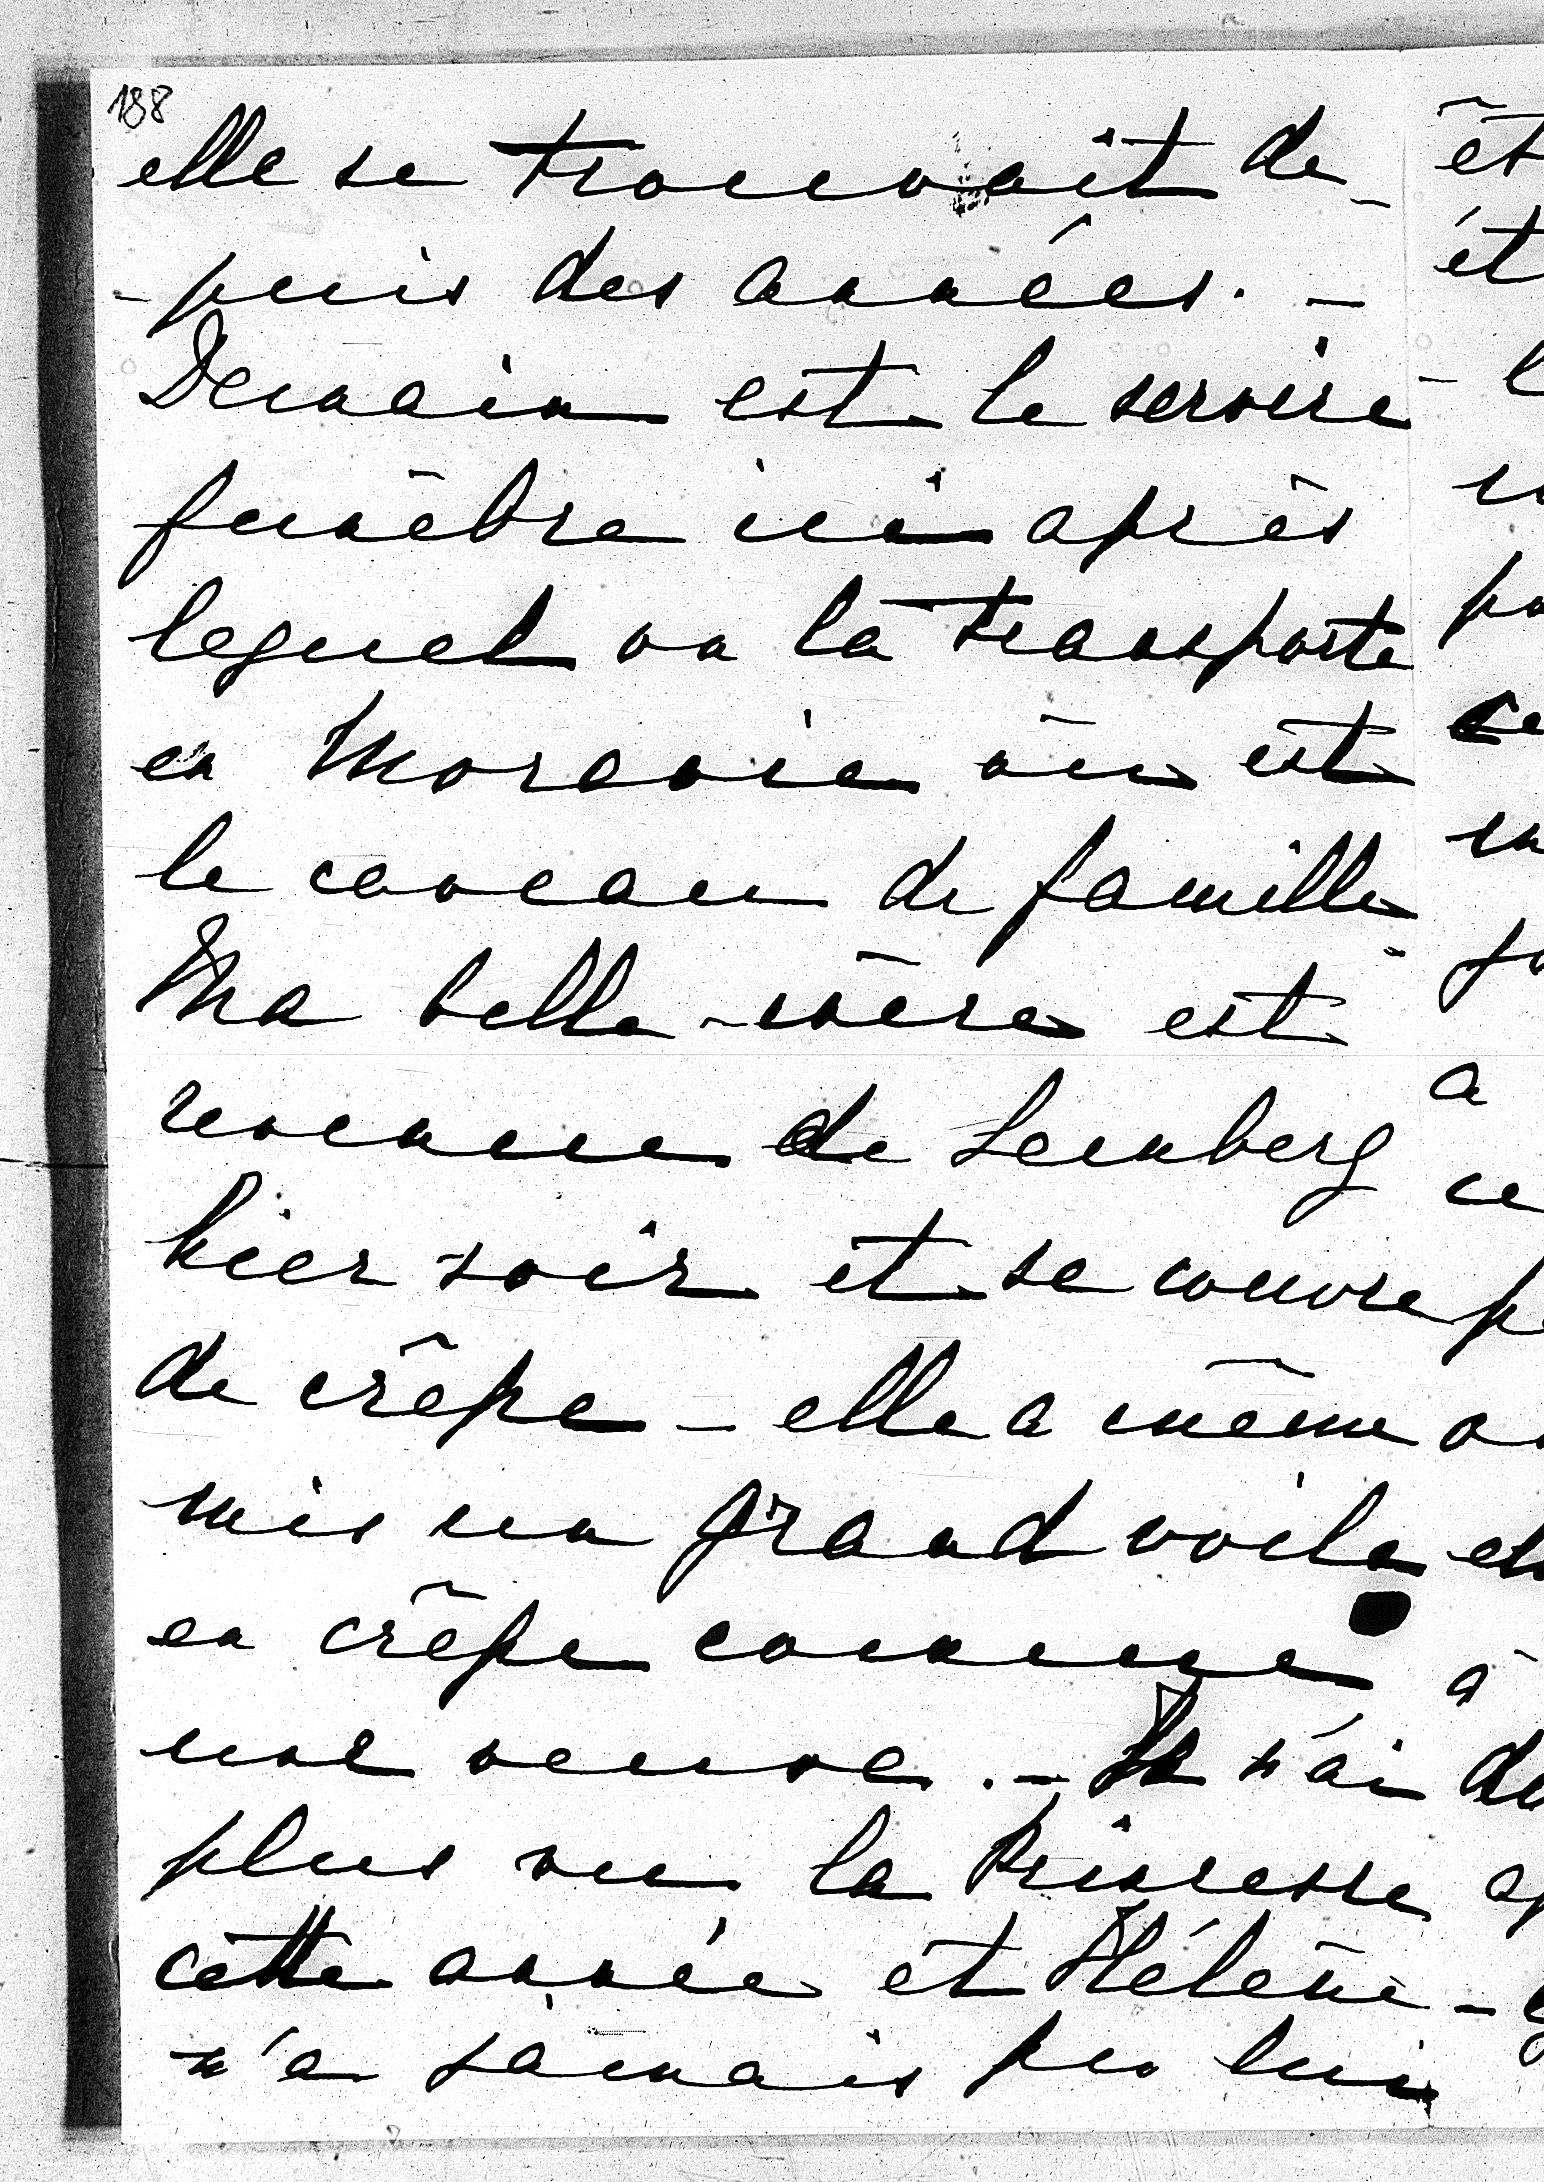 188
elle se trouvait de-
-puis des années. -
Demain est le service
funèbre ici après
lequel on la transporte
en Moravie où est
le caveau de famille
Ma belle-mère est
revenue de Lemberg
hier soir et se couvre
de crêpe - elle a même
mis un grand voile
en crêpe comme
une veuve. - Je n'ai
plus vu la Princesse
cette année et Hélène
n'a jamais pu lui